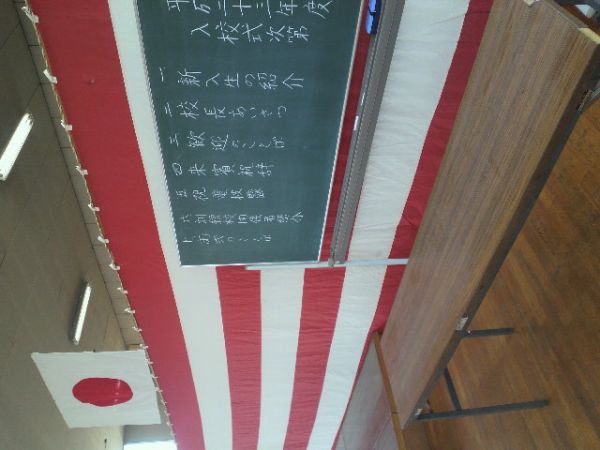 平成二十三年度
入校式次第
一 新入生の紹介
二 校長あいさつ
三 歓迎のことば
四 来賓祝辞
五 祝電披露
六 訓練校担任者紹介
七 お礼のことば